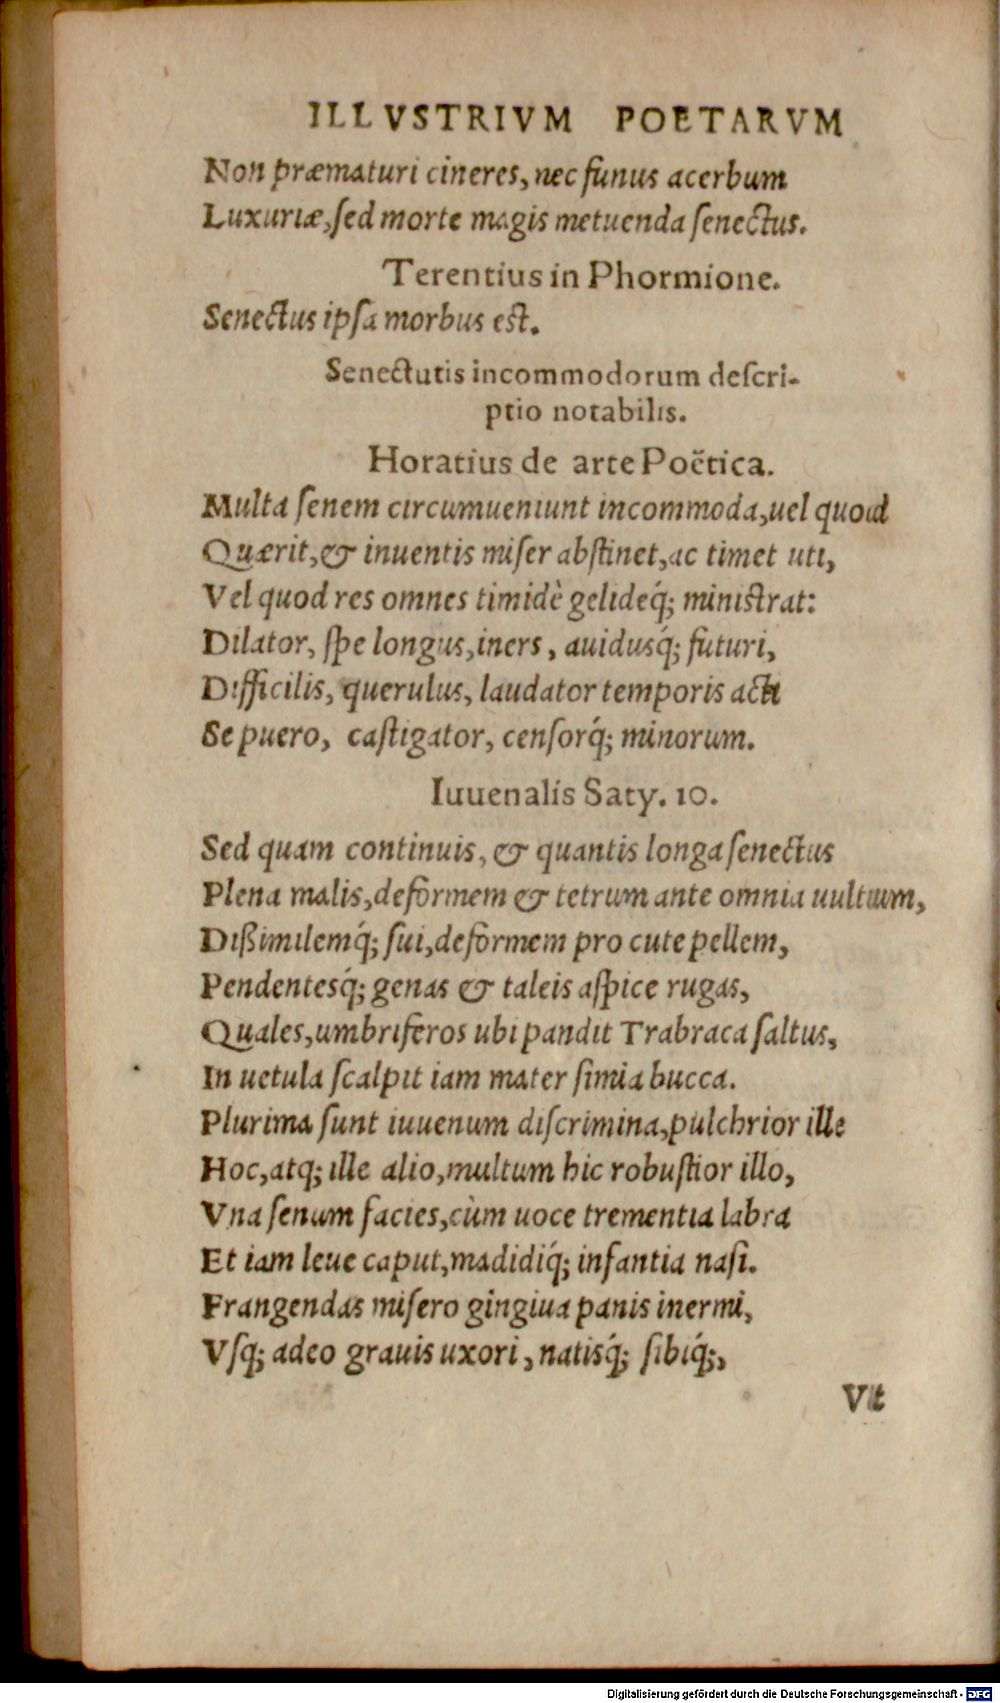 ILLVSTRIVM POETARVM
Non præmaturi cineres, nec funus acerbum
Luxuriæ, ſed morte magis metuenda ſenectus.
Terentius in Phormione.
Senectus ipſa morbus eſt.
Senectutis incommodorum deſcri-
ptio notabilis.
Horatius de arte Poëtica.
Multa ſenem circumueniunt incommoda, uel quod
Quærit, & inuentis miſer abſtinet, ac timet uti,
Vel quod res omnes timidè gelideq́; miniſtrat:
Dilator, ſpe longus, iners, auidusq́; futuri,
Difficilis, querulus, laudator temporis acti
Se puero, caſtigator, cenſorq́; minorum.
Iuuenalis Saty. 10.
Sed quam continuis, & quantis longa ſenectus
Plena malis, deformem & tetrum ante omnia uultum,
Dißimilemq́; ſui, deformem pro cute pellem,
Pendentesq́; genas & taleis aſpice rugas,
Quales, umbriferos ubi pandit Trabraca ſaltus,
In uetula ſcalpit iam mater ſimia bucca.
Plurima ſunt iuuenum diſcrimina, pulchrior ille
Hoc, atq; ille alio, multum hic robuſtior illo,
Vna ſenum facies, cùm uoce trementia labra
Et iam leue caput, madidiq́; infantia naſi.
Frangendas miſero gingiua panis inermi,
Vſq; adeo grauis uxori, natisq́; ſibiq́;,
Vt
Digitalisierung gefördert durch die Deutsche Forschungsgemeinschaft - DFG